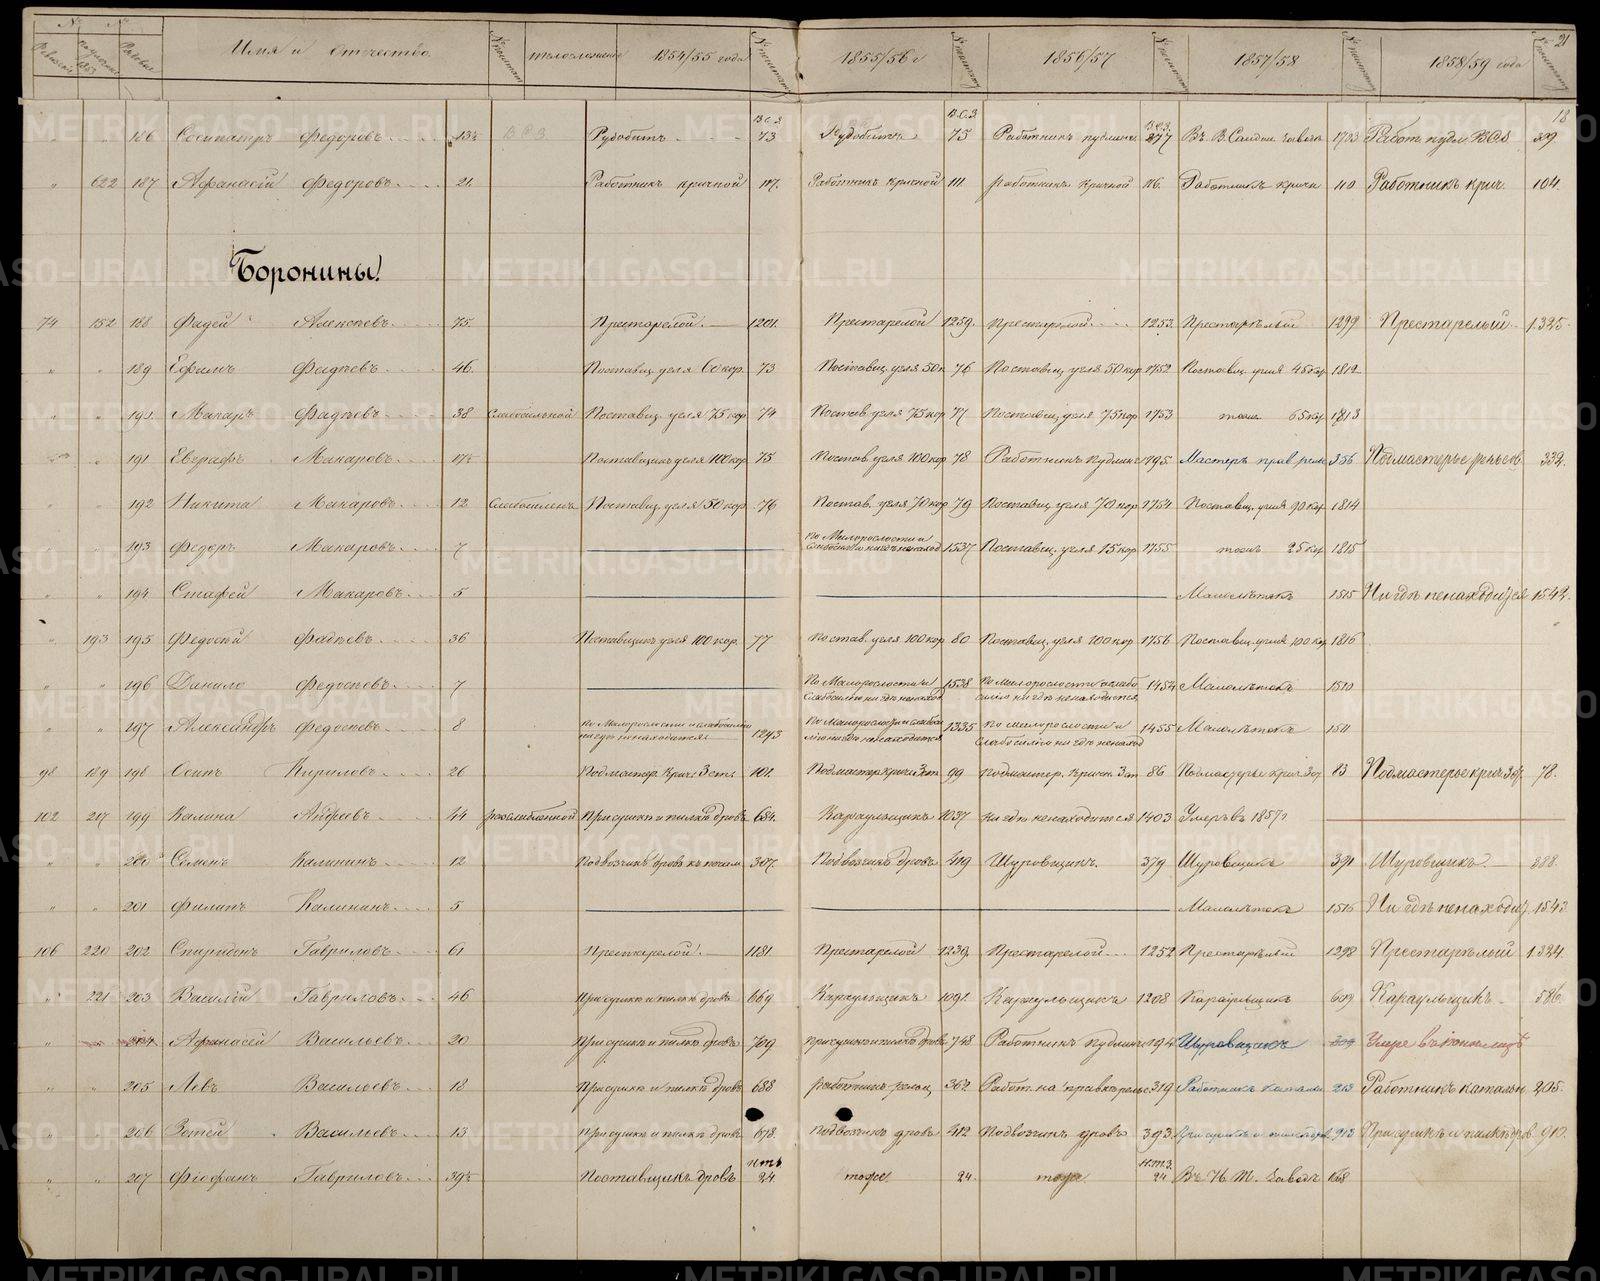 № № 21
Ревизской Рядовые Имя и Отчество № телосложение 1854/55 года № 1855/56 г № 1856/57 № 1857/58 № 1858/59 года №
18
В.С.З В.С.З В.С.З.
" " 186 Сосипатръ Федоровъ 13½ В.С.З Рудобитъ 73 Рудобитъ 75 Работникъ пудлинг 277 Въ В. Салдин. заводъ 1723 Работ. пудл. В.С.З 399.
" 622 187 Афанасій Федоровъ 21. Работникъ кричной 117. Работникъ кричной 111. работникъ кричной 116. Работникъ кричн 110. Работникъ крич. 104.
Боронины.
74 152 188 Фадей Алексѣевъ 75. Престарелой 1201. Престарелой 1259. престарелой 1253. Престарелый 1299 Престарелый 1325.
" " 189 Ефимъ Фадѣевъ 46. Поставщ. угля 60 кор. 73 Поставщ. угля 50 к 76 Поставщ. угля 50 кор. 1752 Поставщ. угля 45 кор 1812.
" " 190 Макаръ Фадѣевъ 38 Слабосильной Поставщ. угля 75 кор. 74 Постав. угля 75 кор 77 Поставщ. угля 75 кор 1753 тоже 65 кор 1813
" " 191 Евграфъ Макаровъ 17½ Поставщикъ угля 100 кор. 75 Постав. угля 100 кор 78 Работникъ пудлинг 195. Мастеръ прав. рельс 356 Подмастерье рельсов 332.
" " 192 Никита Макаровъ 12 Слабосиленъ Поставщ. угля 50 кор. 76 Постав. угля 70 кор 79 Поставщ. угля 70 кор 1754 Поставщ. угля 90 кор 1814
" " 193 Федоръ Макаровъ 7 по Малорослости и слабосилію нигдѣ ненаход 1537 Поставщ. угля 15 кор 1755 тоже 25 кор 1815
" " 194 Стафей Макаровъ 5 Малолѣтокъ 1515 Нигдѣ ненаходится 1542.
" 193 195 Федосѣй Фадѣевъ 36 Поставщикъ угля 100 кор. 77 Постав. угля 100 кор 80 Поставщ. угля 100 кор 1756 Поставщ. угля 100 кор 1816
" " 196 Данило Федосѣевъ 7 По Малорослости и слабосилію нигдѣ ненаход 1538 По Малорослости и слабосилію нигдѣ ненаходится 1454 Малолѣтокъ 1510
" " 197 Александръ Федосѣевъ 8 по Малорослости и слабосилію нигдѣ ненаходится 1243 По Малорослости и слабосилію нигдѣ ненаходится 1335 по малорослости и слабосилію нигдѣ ненаход 1455 Малолѣтокъ 1511
98 189 198 Осипъ Кириловъ 26 Подмастер. Крич. 3 ст. 101. Подмастер крич 3 ст. 99 подмастер. кричн 3 ст 86 Подмастерье крич 3 ст 83 Подмастерье крич 3 ст. 78.
102 217 199 Калина Андреевъ 44 разслабленной При сушкѣ и пилкѣ дровъ 684. Караульщикъ 1037 нигдѣ ненаходится 1403 Умеръ въ 1857 г
" " 200 Семенъ Калининъ 12 Подвозчикъ дровъ къ печам. 307. Подвозчикъ дровъ 419 Шуровщикъ. 379 Шуровщикъ 391 Шуровщикъ 388.
" " 201 Филипъ Калининъ 5 Малолѣтокъ 1516 Нигдѣ ненаходит. 1543
106 220 202 Спиридонъ Гавриловъ 61 Престарелой 1181 Престарелой 1239. Престарелой 1252 Престарелый 1298 Престарѣлый 1324.
" 221 203 Василій Гавриловъ 46 При сушкѣ и пилкѣ дровъ 669 Караульщикъ 1091. Караульщикъ 1208 Караульщикъ 609 Караульщикъ 586.
" " 204 Афанасей Васильевъ 20 При сушкѣ и пилкѣ дровъ 769 при сушкѣ и пилкѣ дровъ 748 Работникъ пудлинг 194 Шуровщикъ 309 Умре
" " 205 Левъ Васильевъ 18 При сушкѣ и пилкѣ дровъ 688 работникъ рельс. 362. Работ. на правкѣ рельс 319 Работникъ катальн 213 Работникъ катальн 205.
" " 206 Зотей Васильевъ 13 При сушкѣ и пилкѣ дровъ 678. подвозчикъ дровъ 412 Подвозчикъ дровъ 393 При сушкѣ и пилкѣ дров 913 При сушкѣ и пилкѣ дров. 910.
Н.Т.З. Н.Т.З.
" " 207 Фіофанъ Гавриловъ 39½ Поставщикъ дровъ 24. тоже 24. тоже 24 Въ Н. Т. Заводъ 168
METRIKI.GASO-URAL.RU